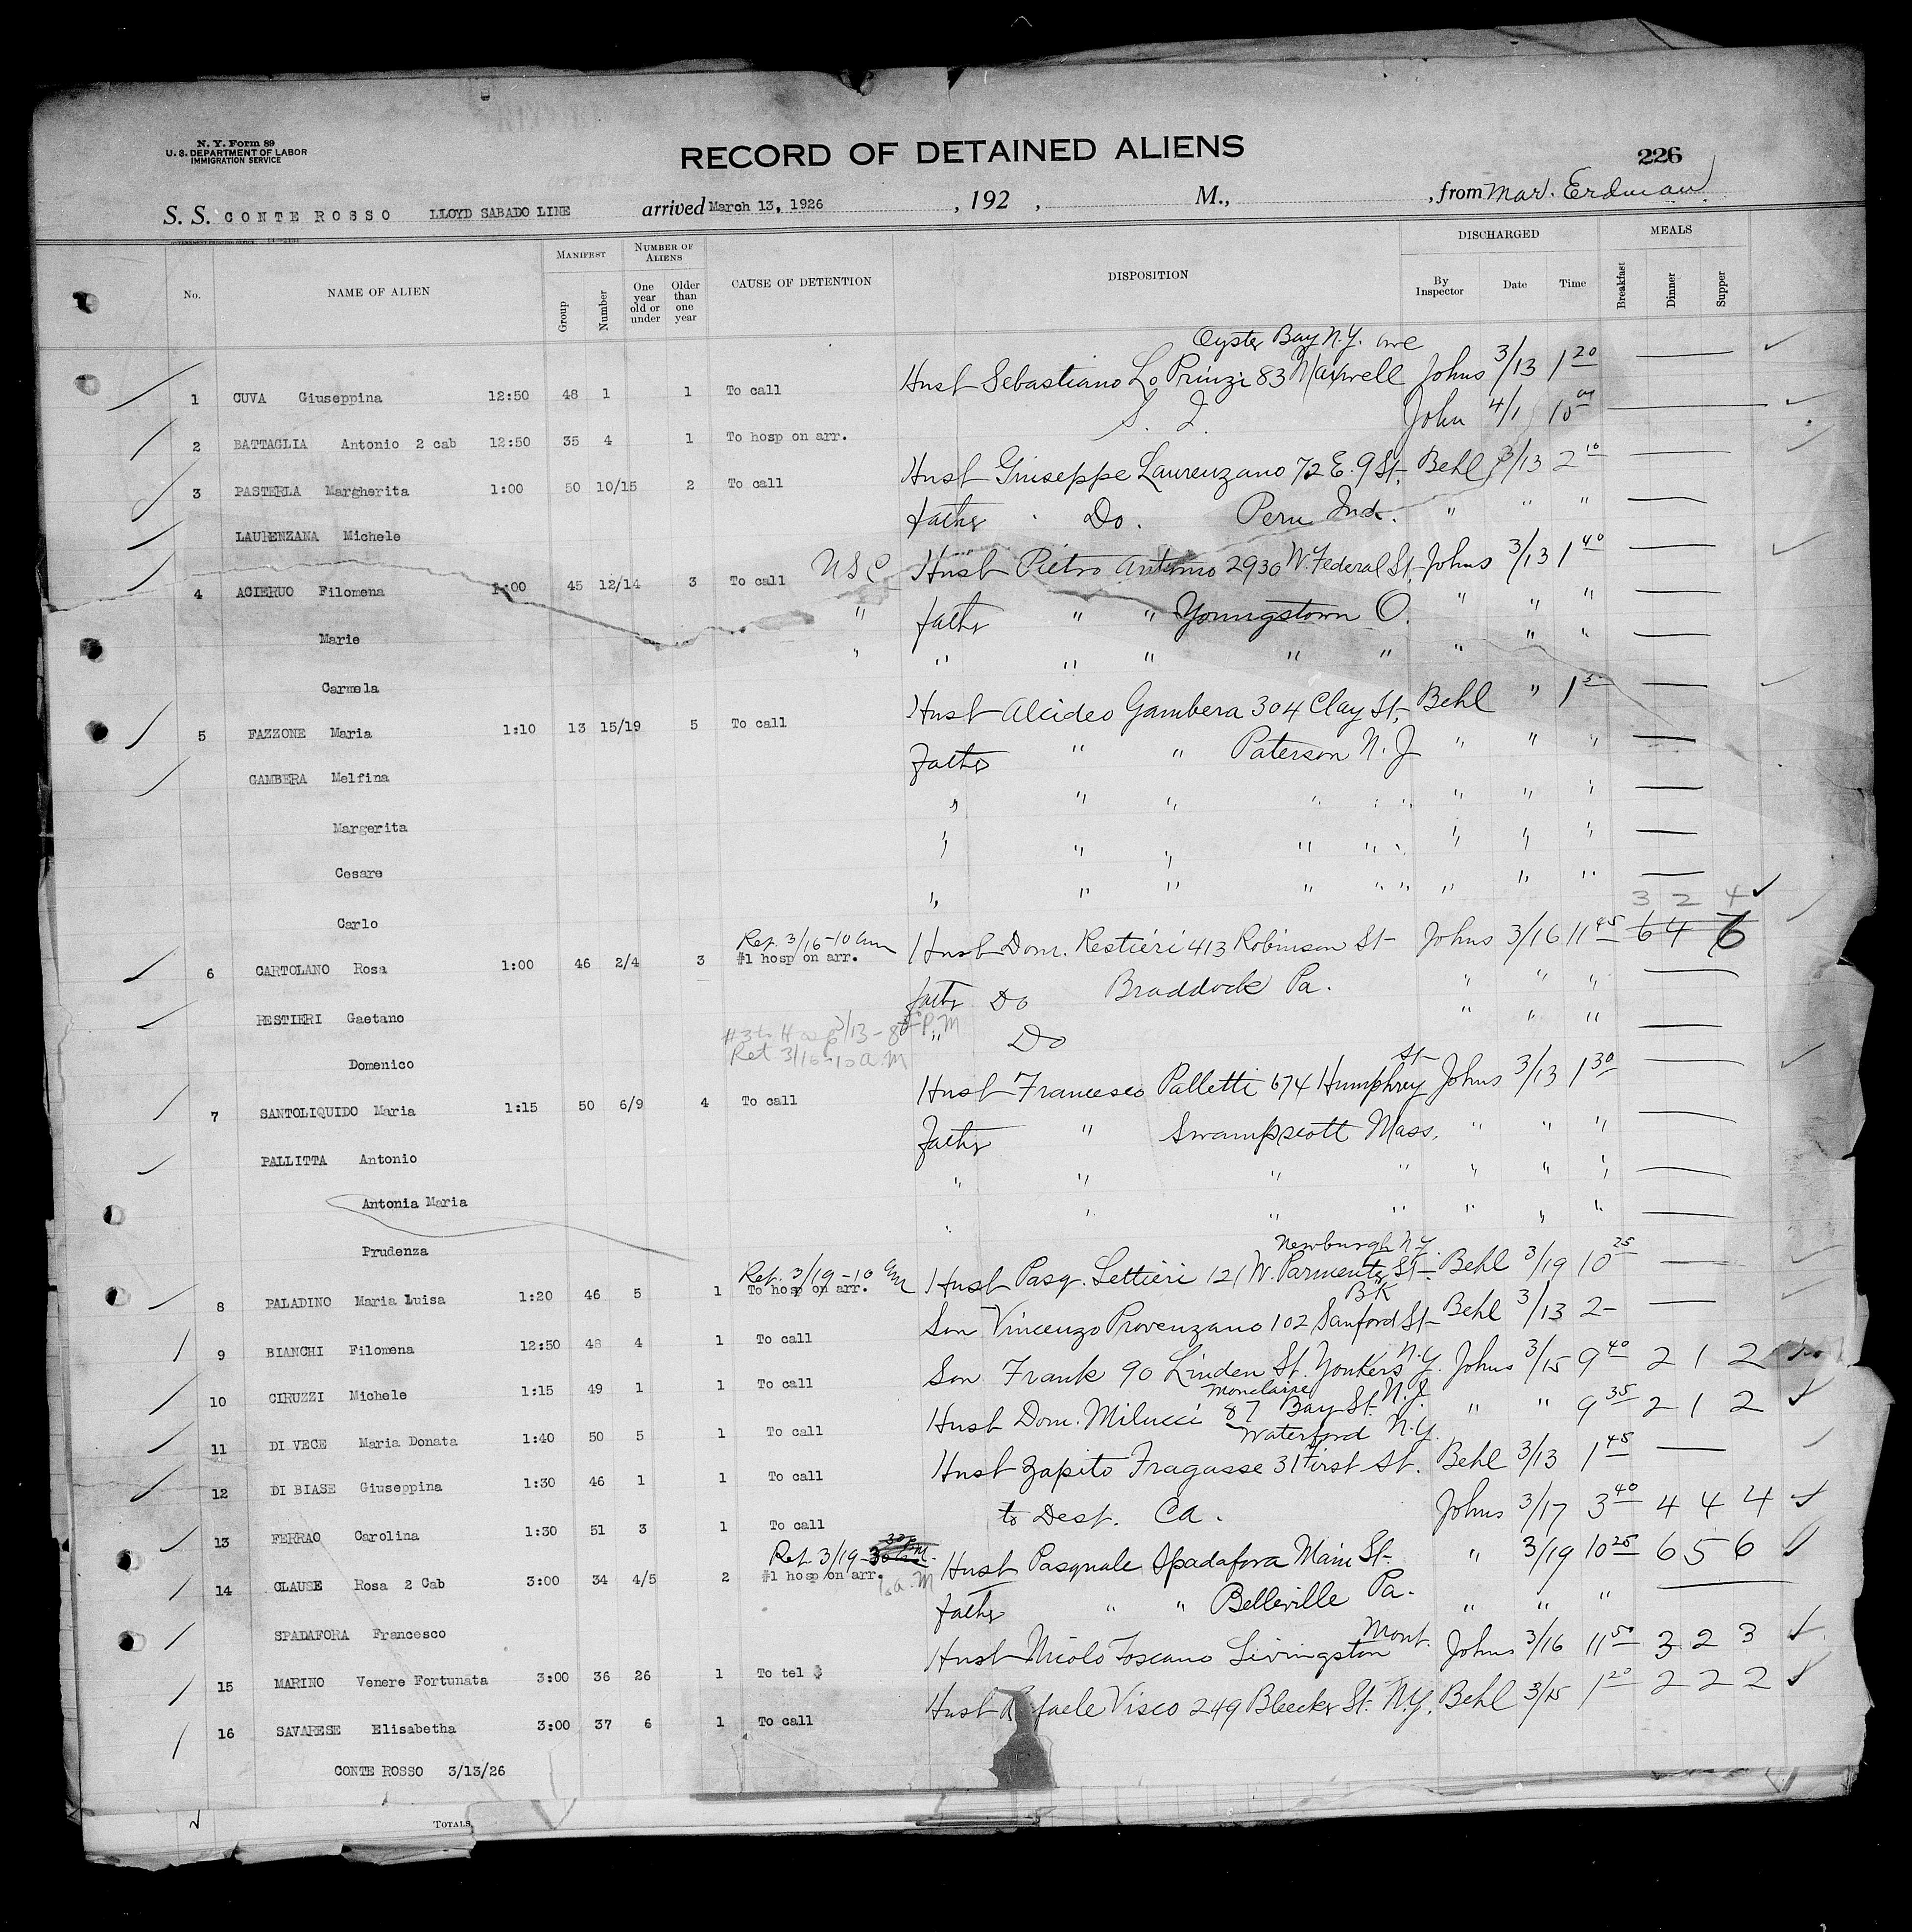 N. Y. Form 89
U. S. DEPARTMENT OF LABOR
IMMIGRATION SERVICE
RECORD OF DETAINED ALIENS
226
S. S. CONTE ROSSO LLOYD SABADO LINE arrived March 13, 1926, 192 , M., from Mar. Erdman
No. NAME OF ALIEN MANIFEST Group Number NUMBER OF ALIENS One year old or under Older than one year CAUSE OF DETENTION DISPOSITION DISCHARGED By Inspector Date Time MEALS Breakfast Dinner Supper
Oyster Bay N.Y. ave
1 CUVA Giuseppina 12:50 48 1 1 To call Husb Sebastiano Lo Prinzi 83 Maxwell Johns 3/13 1 20
2 BATTAGLIA Antonio 2 cab 12:50 35 4 1 To hosp on arr. S. I. John 4/1 10
3 PASTERLA Margherita 1:00 50 10/15 2 To call Husb Giuseppe Laurenzano 72 E. 9 St, Behl 3/13 2 10
LAURENZANA Michele father Do. Peru Ind. " " "
4 ACIERUO Filomena 1:00 45 12/14 3 To call USC Husb Pietro Antonio 2930 W. Federal St, Johns 3/13 1 40
Marie " father " " Youngstown O. " " "
Carmela " " " " " " " " "
5 FAZZONE Maria 1:10 13 15/19 5 To call Husb Alcideo Gambera 304 Clay St, Behl " 1 5
GAMBERA Melfina Father " " Paterson N. J " " "
Margerita " " " " " " " " "
Cesare " " " " " " " " "
Carlo " " " " " " " " "
3 2 4
Ret. 3/16-10 am
6 CARTOLANO Rosa 1:00 46 2/4 3 #1 hosp on arr. Husb Dom. Restieri 413 Robinson St Johns 3/16 11 45 6 4 6
RESTIERI Gaetano father Do Braddock Pa. " " "
#3 to Hosp 3/13 - 8 P.M
Domenico Ret 3/16-10 a.M " Do " " "
7 SANTOLIQUIDO Maria 1:15 50 6/9 4 To call Husb Francesco Palletti 674 Humphrey St Johns 3/13 1 30
PALLITTA Antonio Father " Swampscott Mass. " " "
Antonia Maria " " " " " " "
Prudenza " " " " " " "
Ret. 3/19-10 am Newburgh N.Y.
8 PALADINO Maria Luisa 1:20 46 5 1 To hosp on arr. Husb Pasq. Lettieri 121 W. Parmenter St Behl 3/19 10 25
9 BIANCHI Filomena 12:50 48 4 1 To call Son Vincenzo Provenzano 102 Sanford St BK Behl 3/13 2-
10 CIRUZZI Michele 1:15 49 1 1 To call Son Frank 90 Linden St. Yonkers N.Y. Johns 3/15 9 40 2 1 2
11 DI VECE Maria Donata 1:40 50 5 1 To call Husb Dom. Milucci 87 Bay St. Monclaire N.J. " " 9 35 2 1 2
Waterford N.Y.
12 DI BIASE Giuseppina 1:30 46 1 1 To call Husb Zapito Fragasse 31 First St. Behl 3/13 1 45
13 FERRAO Carolina 1:30 51 3 1 To call to Dest. Ca. Johns 3/17 3 40 4 4 4
Ret 3/19
14 CLAUSE Rosa 2 Cab 3:00 34 4/5 2 #1 hosp on arr. 10 a.M Husb Pasquale Spadafora Main St. " 3/19 10 25 6 5 6
SPADAFORA Francesco father " " Belleville Pa. " " "
15 MARINO Venere Fortunata 3:00 36 26 1 To tel $ Husb Nicolo Toscano Livingston Mont. Johns 3/16 11 50 3 2 3
16 SAVARESE Elisabetha 3:00 37 6 1 To call Husb Rafaele Visco 249 Bleecker St. N.Y. Behl 3/15 1 20 2 2 2
CONTE ROSSO 3/13/26
TOTALS,